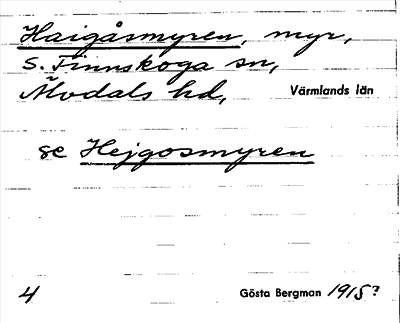 Haigåsmyren, myr,
S. Finnskoga sn,
Älvdals hd, Värmlands län
se Hejgosmyren
4 Gösta Bergman 1915?